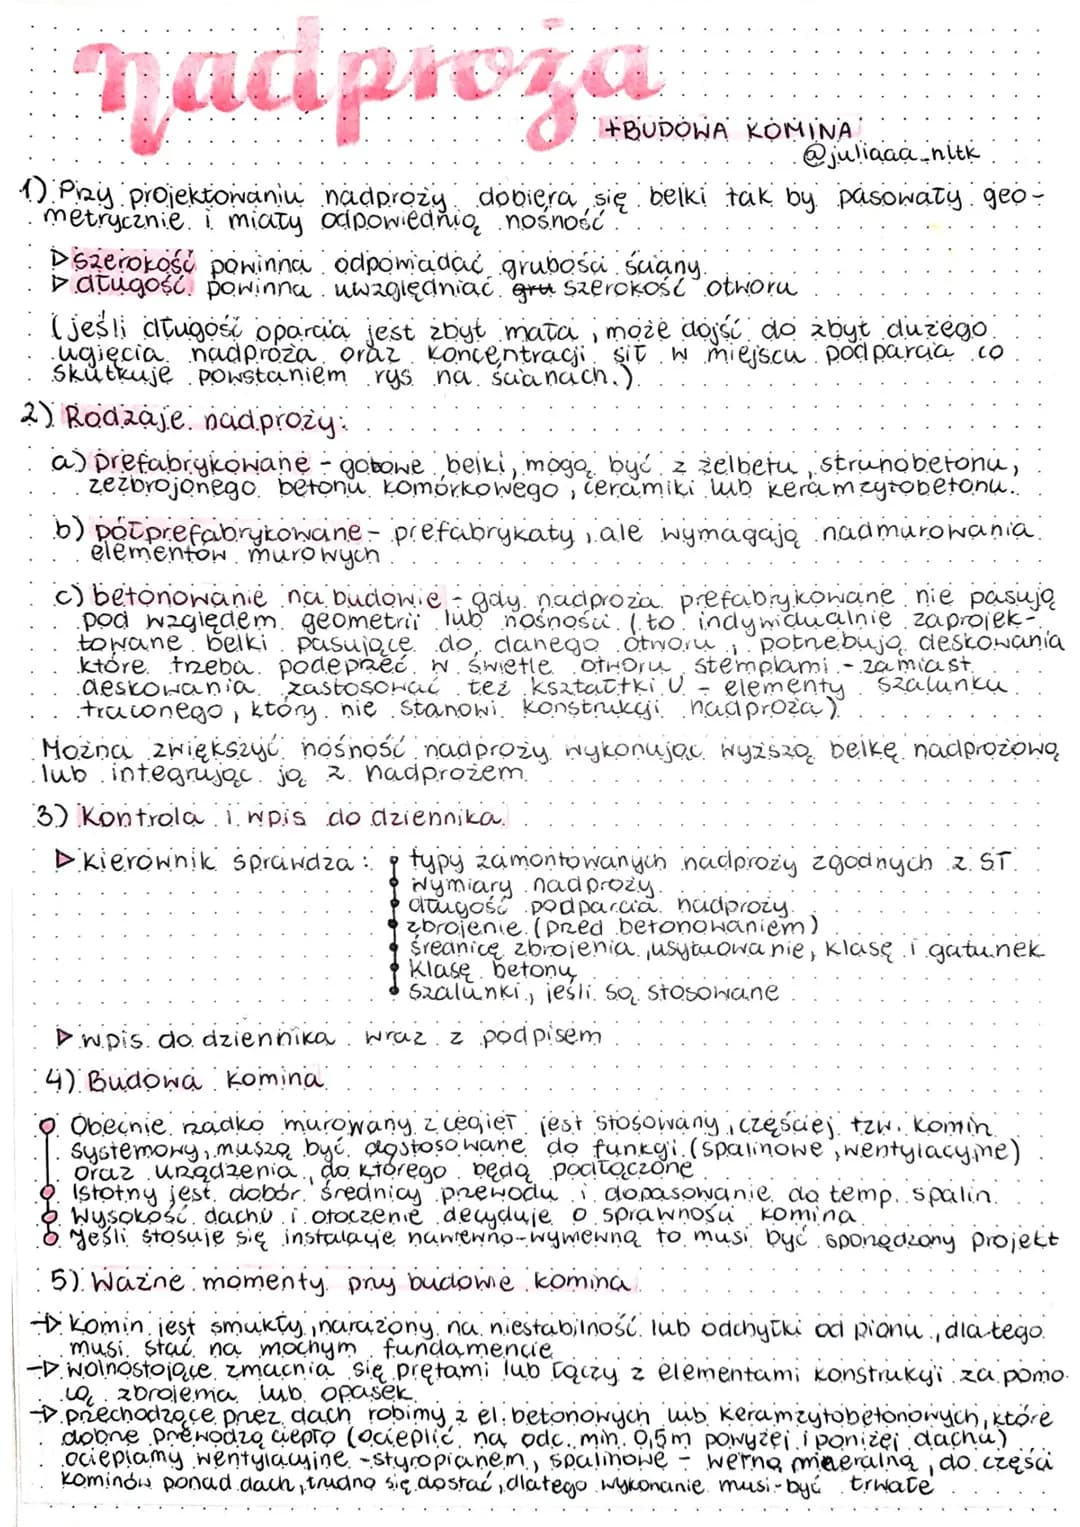 nadproża
+BUDOWA KOMINA
@juliaaa_nltk
1) Przy projektowaniu nadproży dobiera się belki tak by pasowały geo-
metrycznie i miały odpowiednią nośność.
▷ szerokość powinna odpowiadać grubości ściany.
▷ długość powinna uwzględniać gru szerokość otworu
(jeśli długość oparcia jest zbyt mała, może dojść do zbyt dużego
ugięcia nadproża oraz koncentracji sił w miejscu podparcia co
skutkuje powstaniem rys na ścianach.)
2) Rodzaje nadproży:
a) prefabrykowane - gotowe belki, mogą być z żelbetu, strunobetonu,
zezbrojonego betonu komórkowego, ceramiki lub keramzytobetonu.
b) półprefabrykowane - prefabrykaty, ale wymagają nadmurowania
elementów murowych
c) betonowanie na budowie - gdy nadproża prefabrykowane nie pasują
pod względem geometrii lub nośności. (to indywidualnie zaprojek-
towane belki pasujące do danego otworu, potrzebują deskowania
które trzeba podeprzeć w świetle otworu stemplami - zamiast
deskowania zastosować też kształtki U - elementy szalunku
traconego, który nie stanowi konstrukcji nadproża)
Można zwiększyć nośność nadproży wykonując wyższą belkę nadprożową
lub integrując ją z nadprożem.
3) Kontrola i wpis do dziennika.
▷ kierownik sprawdza: • typy zamontowanych nadproży zgodnych z ST.
• wymiary nadproży.
• długość podparcia nadproży.
• zbrojenie (przed betonowaniem)
• średnicę zbrojenia, usytuowanie, klasę i gatunek
• klasę betonu
• szalunki, jeśli są stosowane
▷ wpis do dziennika wraz z podpisem
4) Budowa komina
Obecnie rzadko murowany z cegieł jest stosowany, częściej tzw. komin
systemowy, muszą być dostosowane do funkcji (spalinowe, wentylacyjne)
oraz urządzenia, do którego będą podłączone
Istotny jest dobór średnicy przewodu i dopasowanie do temp. spalin.
Wysokość dachu i otoczenie decyduje o sprawności komina
Jeśli stosuje się instalację nawiewno-wywiewną to musi być sporządzony projekt
5) Ważne momenty przy budowie komina
→ Komin jest smukły, narażony na niestabilność lub odchyłki od pionu, dlatego
musi stać na mocnym fundamencie
→ wolnostojące zmacnia się prętami lub łączy z elementami konstrukcji za pomo-
cą zbrojenia lub opasek
→ przechodzące przez dach robimy z el. betonowych lub keramzytobetonowych, które
dobrze przewodzą ciepło (ocieplić na odc. min. 0,5m powyżej i poniżej dachu)
ocieplamy wentylacyjne - styropianem, spalinowe - wełną mineralną, do części
kominów ponad dach, trudno się dostać, dlatego wykonanie musi być trwałe